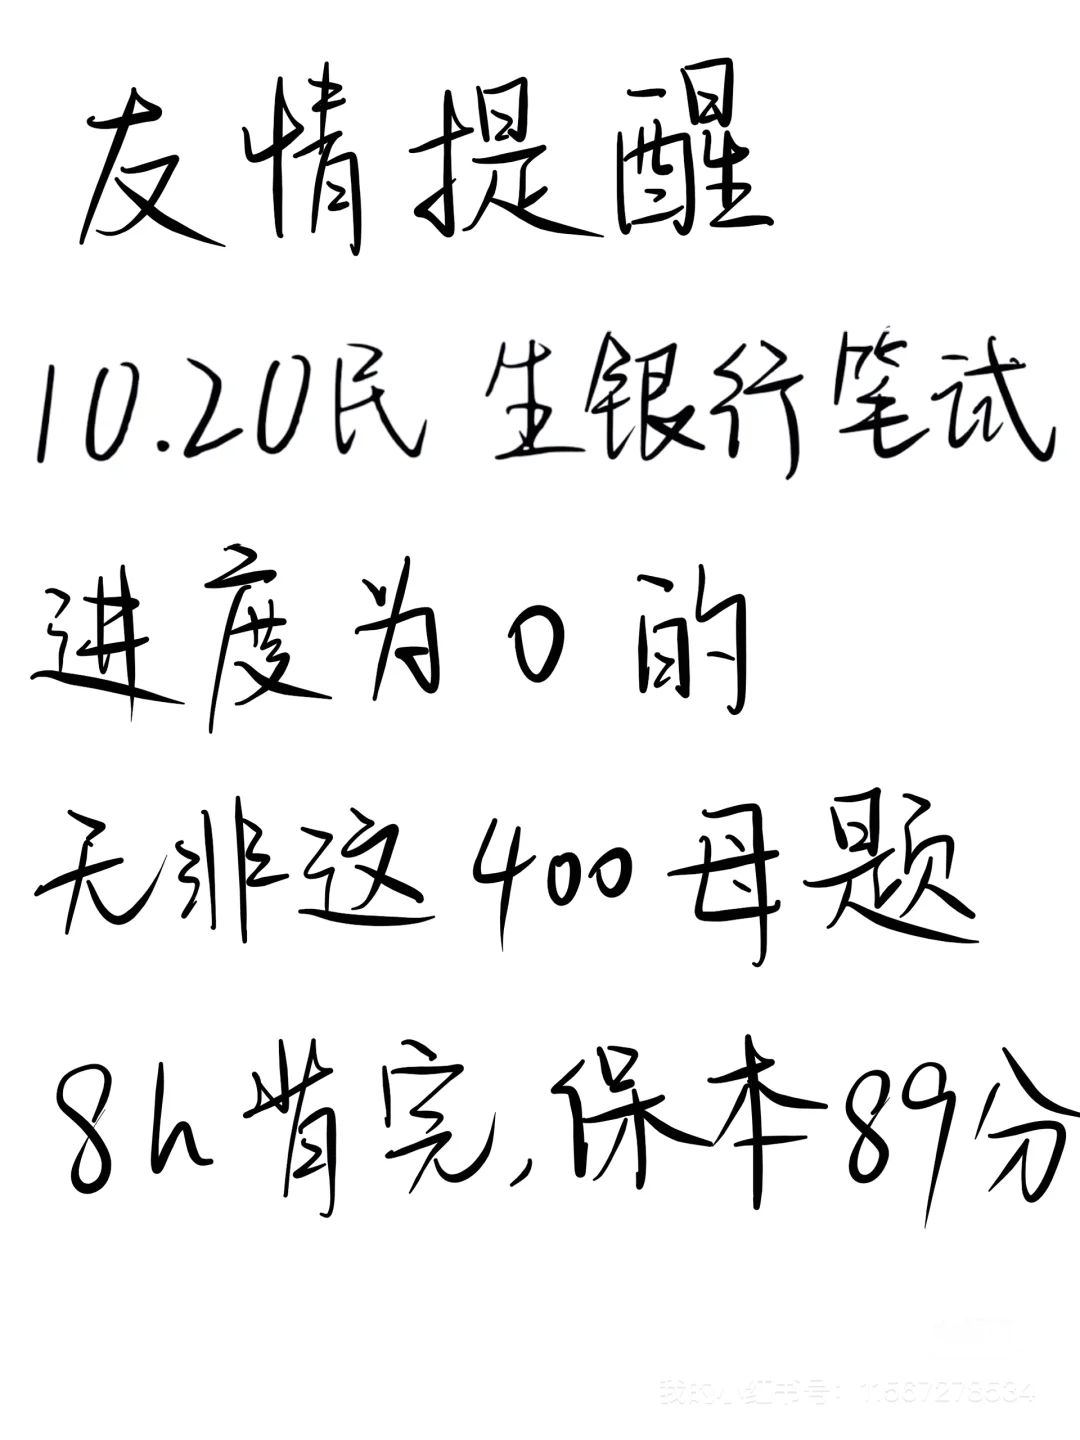 友情提醒
10.20民生银行笔试
进度为0的
无非这400母题
8h背完,保本89分
我的小红书号：11567278534